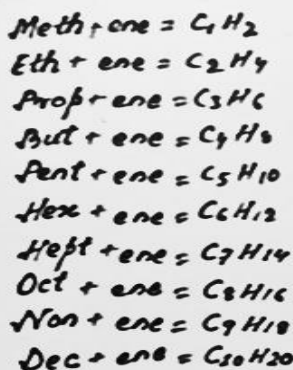 Meth + ene = C₁H₂
Eth + ene = C₂H₄
Prop + ene = C₃H₆
But + ene = C₄H₈
Pent + ene = C₅H₁₀
Hex + ene = C₆H₁₂
Hept + ene = C₇H₁₄
Oct + ene = C₈H₁₆
Non + ene = C₉H₁₈
Dec + ene = C₁₀H₂₀